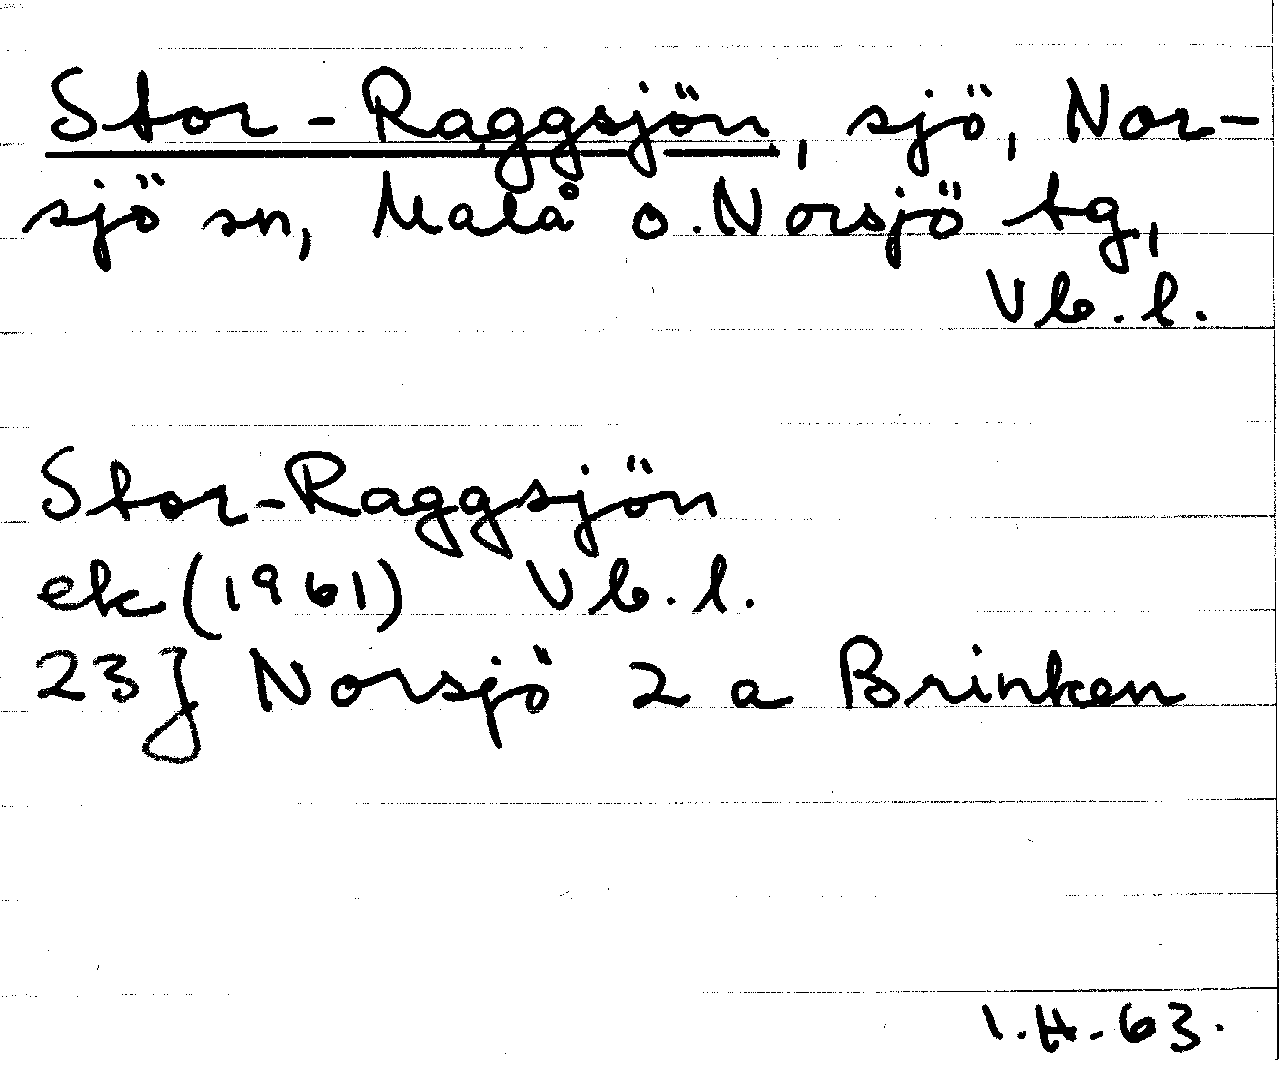 Stor-Raggsjön, sjö, Nor-
sjö sn, Malå o. Norsjö tg,
Vb. l.
Stor-Raggsjön
ek (1961) Vb. l.
23J Norsjö 2 a Brinken
I.H.-63.